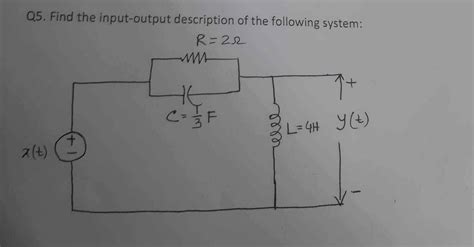 Q5. Find the input-output description of the following system:
R=2Ω
+
C=1/3 F
L=4H
y(t)
+
-
x(t)
-